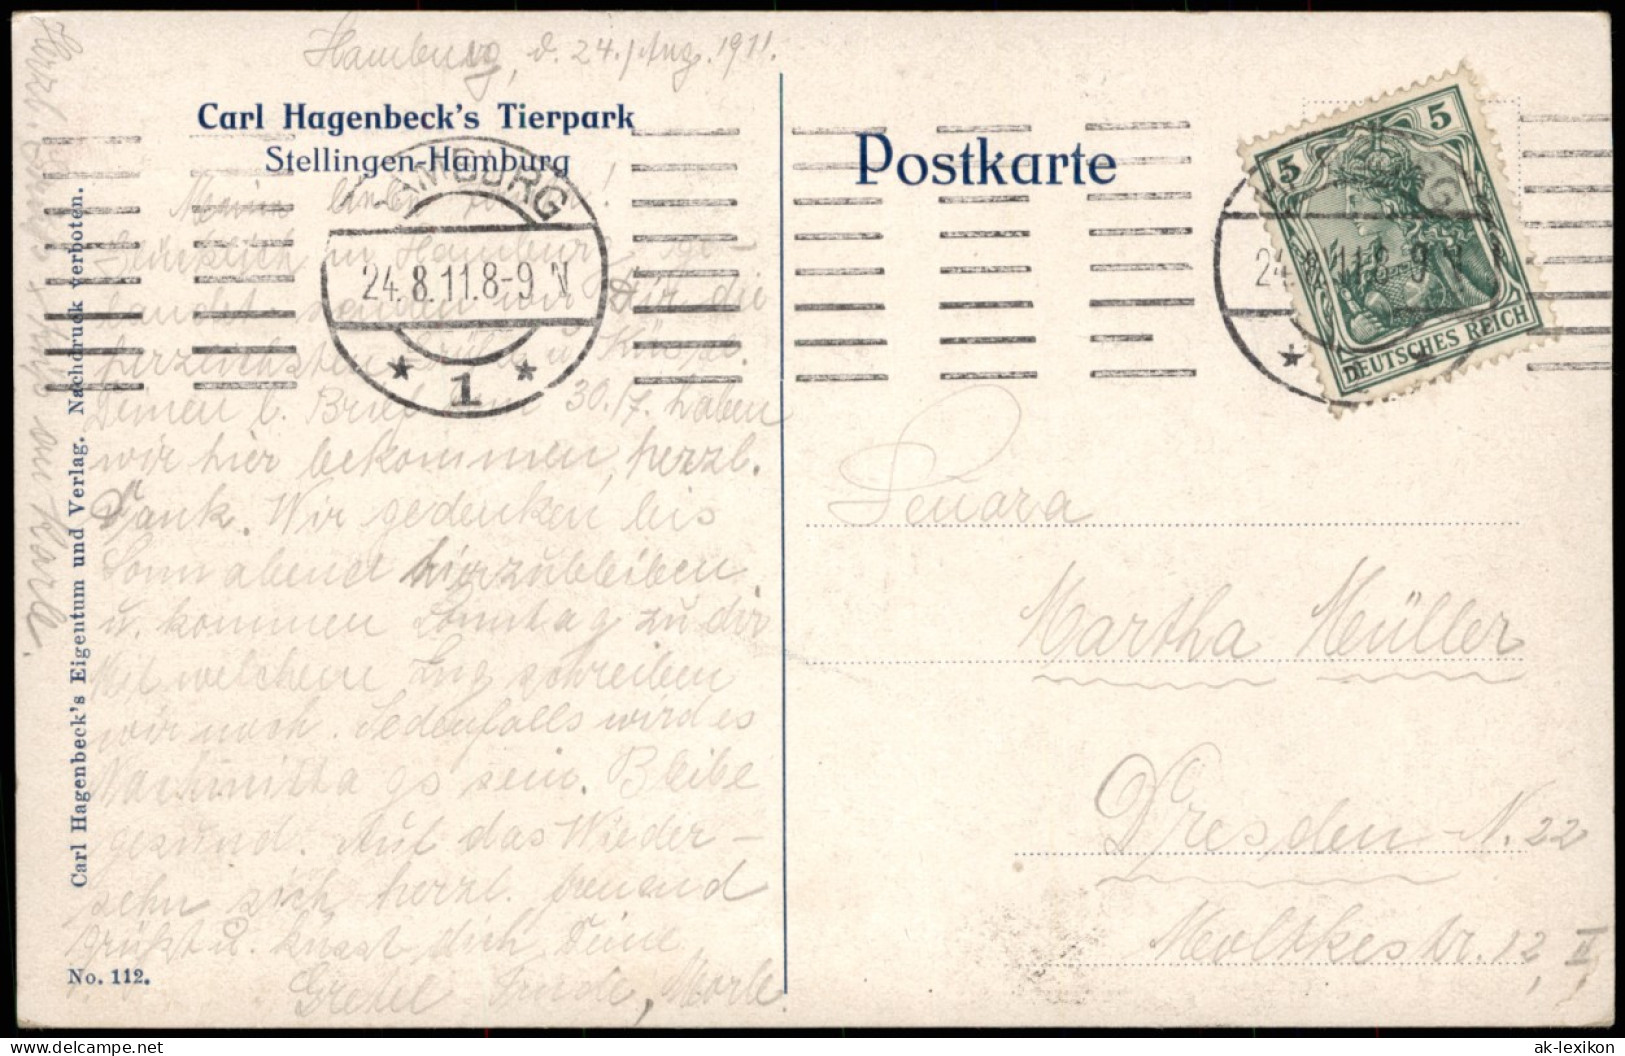 Hamburg, d. 24./Aug. 1911.
Carl Hagenbeck's Tierpark
Stellingen-Hamburg
Postkarte
HAMBURG
24.8.11.8-9 N
* 1 *
5
5
DEUTSCHES REICH
24.8.11.8-9 N
Mein liebes
Glücklich in Hamburg ge-
landet senden wir Dir die
herzlichsten Grüße u. Küsse.
Deinen l. Brief vom 30./7. haben
wir hier bekommen, herzl.
Dank. Wir gedenken bis
Sonnabend hierzubleiben
u. kommen Sonntag zu dir
Mit welchem Zug schreiben
wir noch. Jedenfalls wird es
Nachmittags sein. Bleibe
gesund. Auf das Wieder-
sehn sich herzl. freuend
grüßt u. küsst dich Deine
Gretel
Herzl.
Carl Hagenbeck's Eigentum und Verlag. Nachdruck verboten.
No. 112.
Martha Müller
Dresden N. 22
Moltkestr. 12, II
ak-lexikon
www.delcampe.net